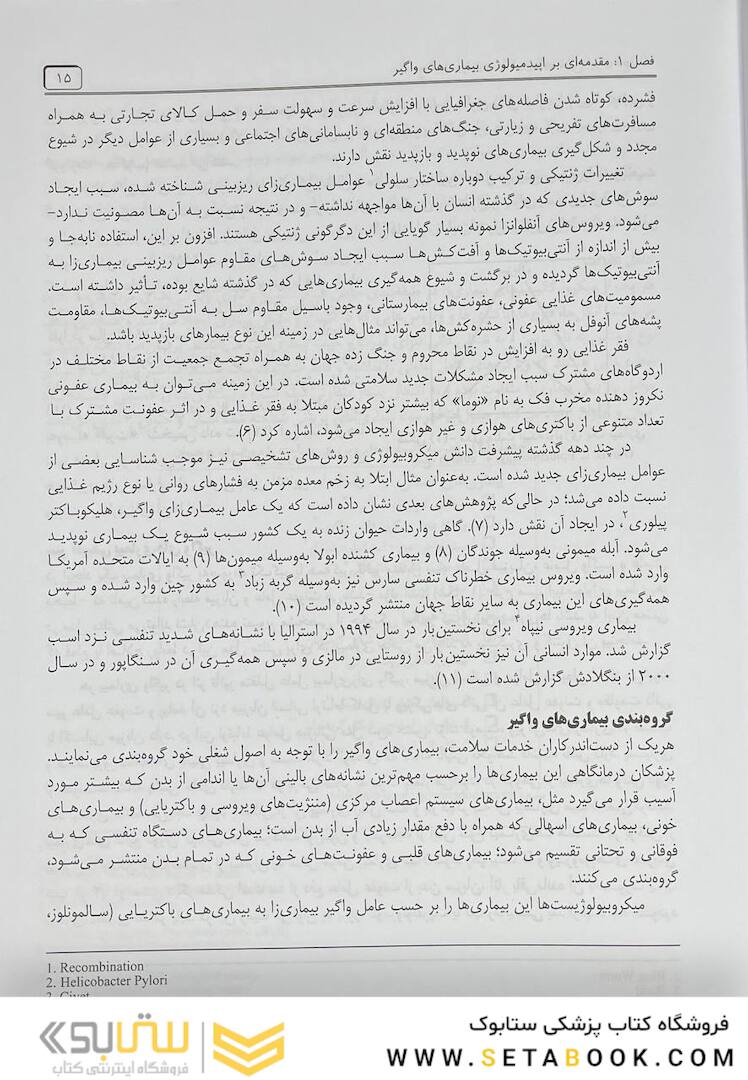 فصل ۱: مقدمه‌ای بر اپیدمیولوژی بیماری‌های واگیر
۱۵
فشرده، کوتاه شدن فاصله‌های جغرافیایی با افزایش سرعت و سهولت سفر و حمل کالای تجارتی به همراه
مسافرت‌های تفریحی و زیارتی، جنگ‌های منطقه‌ای و نابسامانی‌های اجتماعی و بسیاری از عوامل دیگر در شیوع
مجدد و شکل‌گیری بیماری‌های نوپدید و بازپدید نقش دارند.
تغییرات ژنتیکی و ترکیب دوباره ساختار سلولی۱ عوامل بیماری‌زای ریزبینی شناخته شده، سبب ایجاد
سوش‌های جدیدی که در گذشته انسان با آن‌ها مواجهه نداشته– و در نتیجه نسبت به آن‌ها مصونیت ندارد–
می‌شود. ویروس‌های آنفلوانزا نمونه بسیار گویایی از این دگرگونی ژنتیکی هستند. افزون بر این، استفاده نابه‌جا و
بیش از اندازه از آنتی‌بیوتیک‌ها و آفت‌کش‌ها سبب ایجاد سوش‌های مقاوم عوامل ریزبینی بیماری‌زا به
آنتی‌بیوتیک‌ها گردیده و در برگشت و شیوع همه‌گیری بیماری‌هایی که در گذشته شایع بوده، تأثیر داشته است.
مسمومیت‌های غذایی عفونی، عفونت‌های بیمارستانی، وجود باسیل مقاوم سل به آنتی‌بیوتیک‌ها، مقاومت
پشه‌های آنوفل به بسیاری از حشره‌کش‌ها، می‌تواند مثال‌هایی در زمینه این نوع بیمارهای بازپدید باشد.
فقر غذایی رو به افزایش در نقاط محروم و جنگ زده جهان به همراه تجمع جمعیت از نقاط مختلف در
اردوگاه‌های مشترک سبب ایجاد مشکلات جدید سلامتی شده است. در این زمینه می‌توان به بیماری عفونی
نکروز دهنده مخرب فک به نام «نوما» که بیشتر نزد کودکان مبتلا به فقر غذایی و در اثر عفونت مشترک با
تعداد متنوعی از باکتری‌های هوازی و غیر هوازی ایجاد می‌شود، اشاره کرد (۶).
در چند دهه گذشته پیشرفت دانش میکروبیولوژی و روش‌های تشخیصی نیز موجب شناسایی بعضی از
عوامل بیماری‌زای جدید شده است. به‌عنوان مثال ابتلا به زخم معده مزمن به فشارهای روانی یا نوع رژیم غذایی
نسبت داده می‌شد؛ در حالی‌که پژوهش‌های بعدی نشان داده است که یک عامل بیماری‌زای واگیر، هلیکوباکتر
پیلوری۲، در ایجاد آن نقش دارد (۷). گاهی واردات حیوان زنده به یک کشور سبب شیوع یک بیماری نوپدید
می‌شود. آبله میمونی به‌وسیله جوندگان (۸) و بیماری کشنده ابولا به‌وسیله میمون‌ها (۹) به ایالات متحده آمریکا
وارد شده است. ویروس بیماری خطرناک تنفسی سارس نیز به‌وسیله گربه زباد۳ به کشور چین وارد شده و سپس
همه‌گیری‌های این بیماری به سایر نقاط جهان منتشر گردیده است (۱۰).
بیماری ویروسی نیپاه۴ برای نخستین‌بار در سال ۱۹۹۴ در استرالیا با نشانه‌های شدید تنفسی نزد اسب
گزارش شد. موارد انسانی آن نیز نخستین‌بار از روستایی در مالزی و سپس همه‌گیری آن در سنگاپور و در سال
۲۰۰۰ از بنگلادش گزارش شده است (۱۱).
گروه‌بندی بیماری‌های واگیر
هریک از دست‌اندرکاران خدمات سلامت، بیماری‌های واگیر را با توجه به اصول شغلی خود گروه‌بندی می‌نمایند.
پزشکان درمانگاهی این بیماری‌ها را برحسب مهم‌ترین نشانه‌های بالینی آن‌ها یا اندامی از بدن که بیشتر مورد
آسیب قرار می‌گیرد مثل، بیماری‌های سیستم اعصاب مرکزی (مننژیت‌های ویروسی و باکتریایی) و بیماری‌های
خونی، بیماری‌های اسهالی که همراه با دفع مقدار زیادی آب از بدن است؛ بیماری‌های دستگاه تنفسی که به
فوقانی و تحتانی تقسیم می‌شود؛ بیماری‌های قلبی و عفونت‌های خونی که در تمام بدن منتشر می‌شود،
گروه‌بندی می‌کنند.
میکروبیولوژیست‌ها این بیماری‌ها را بر حسب عامل واگیر بیماری‌زا به بیماری‌های باکتریایی (سالمونلوز،
1. Recombination
2. Helicobacter Pylori
3. Civet
فروشگاه کتاب پزشکی ستابوک
WWW.SETABOOK.COM
ستابوک
فروشگاه اینترنتی کتاب